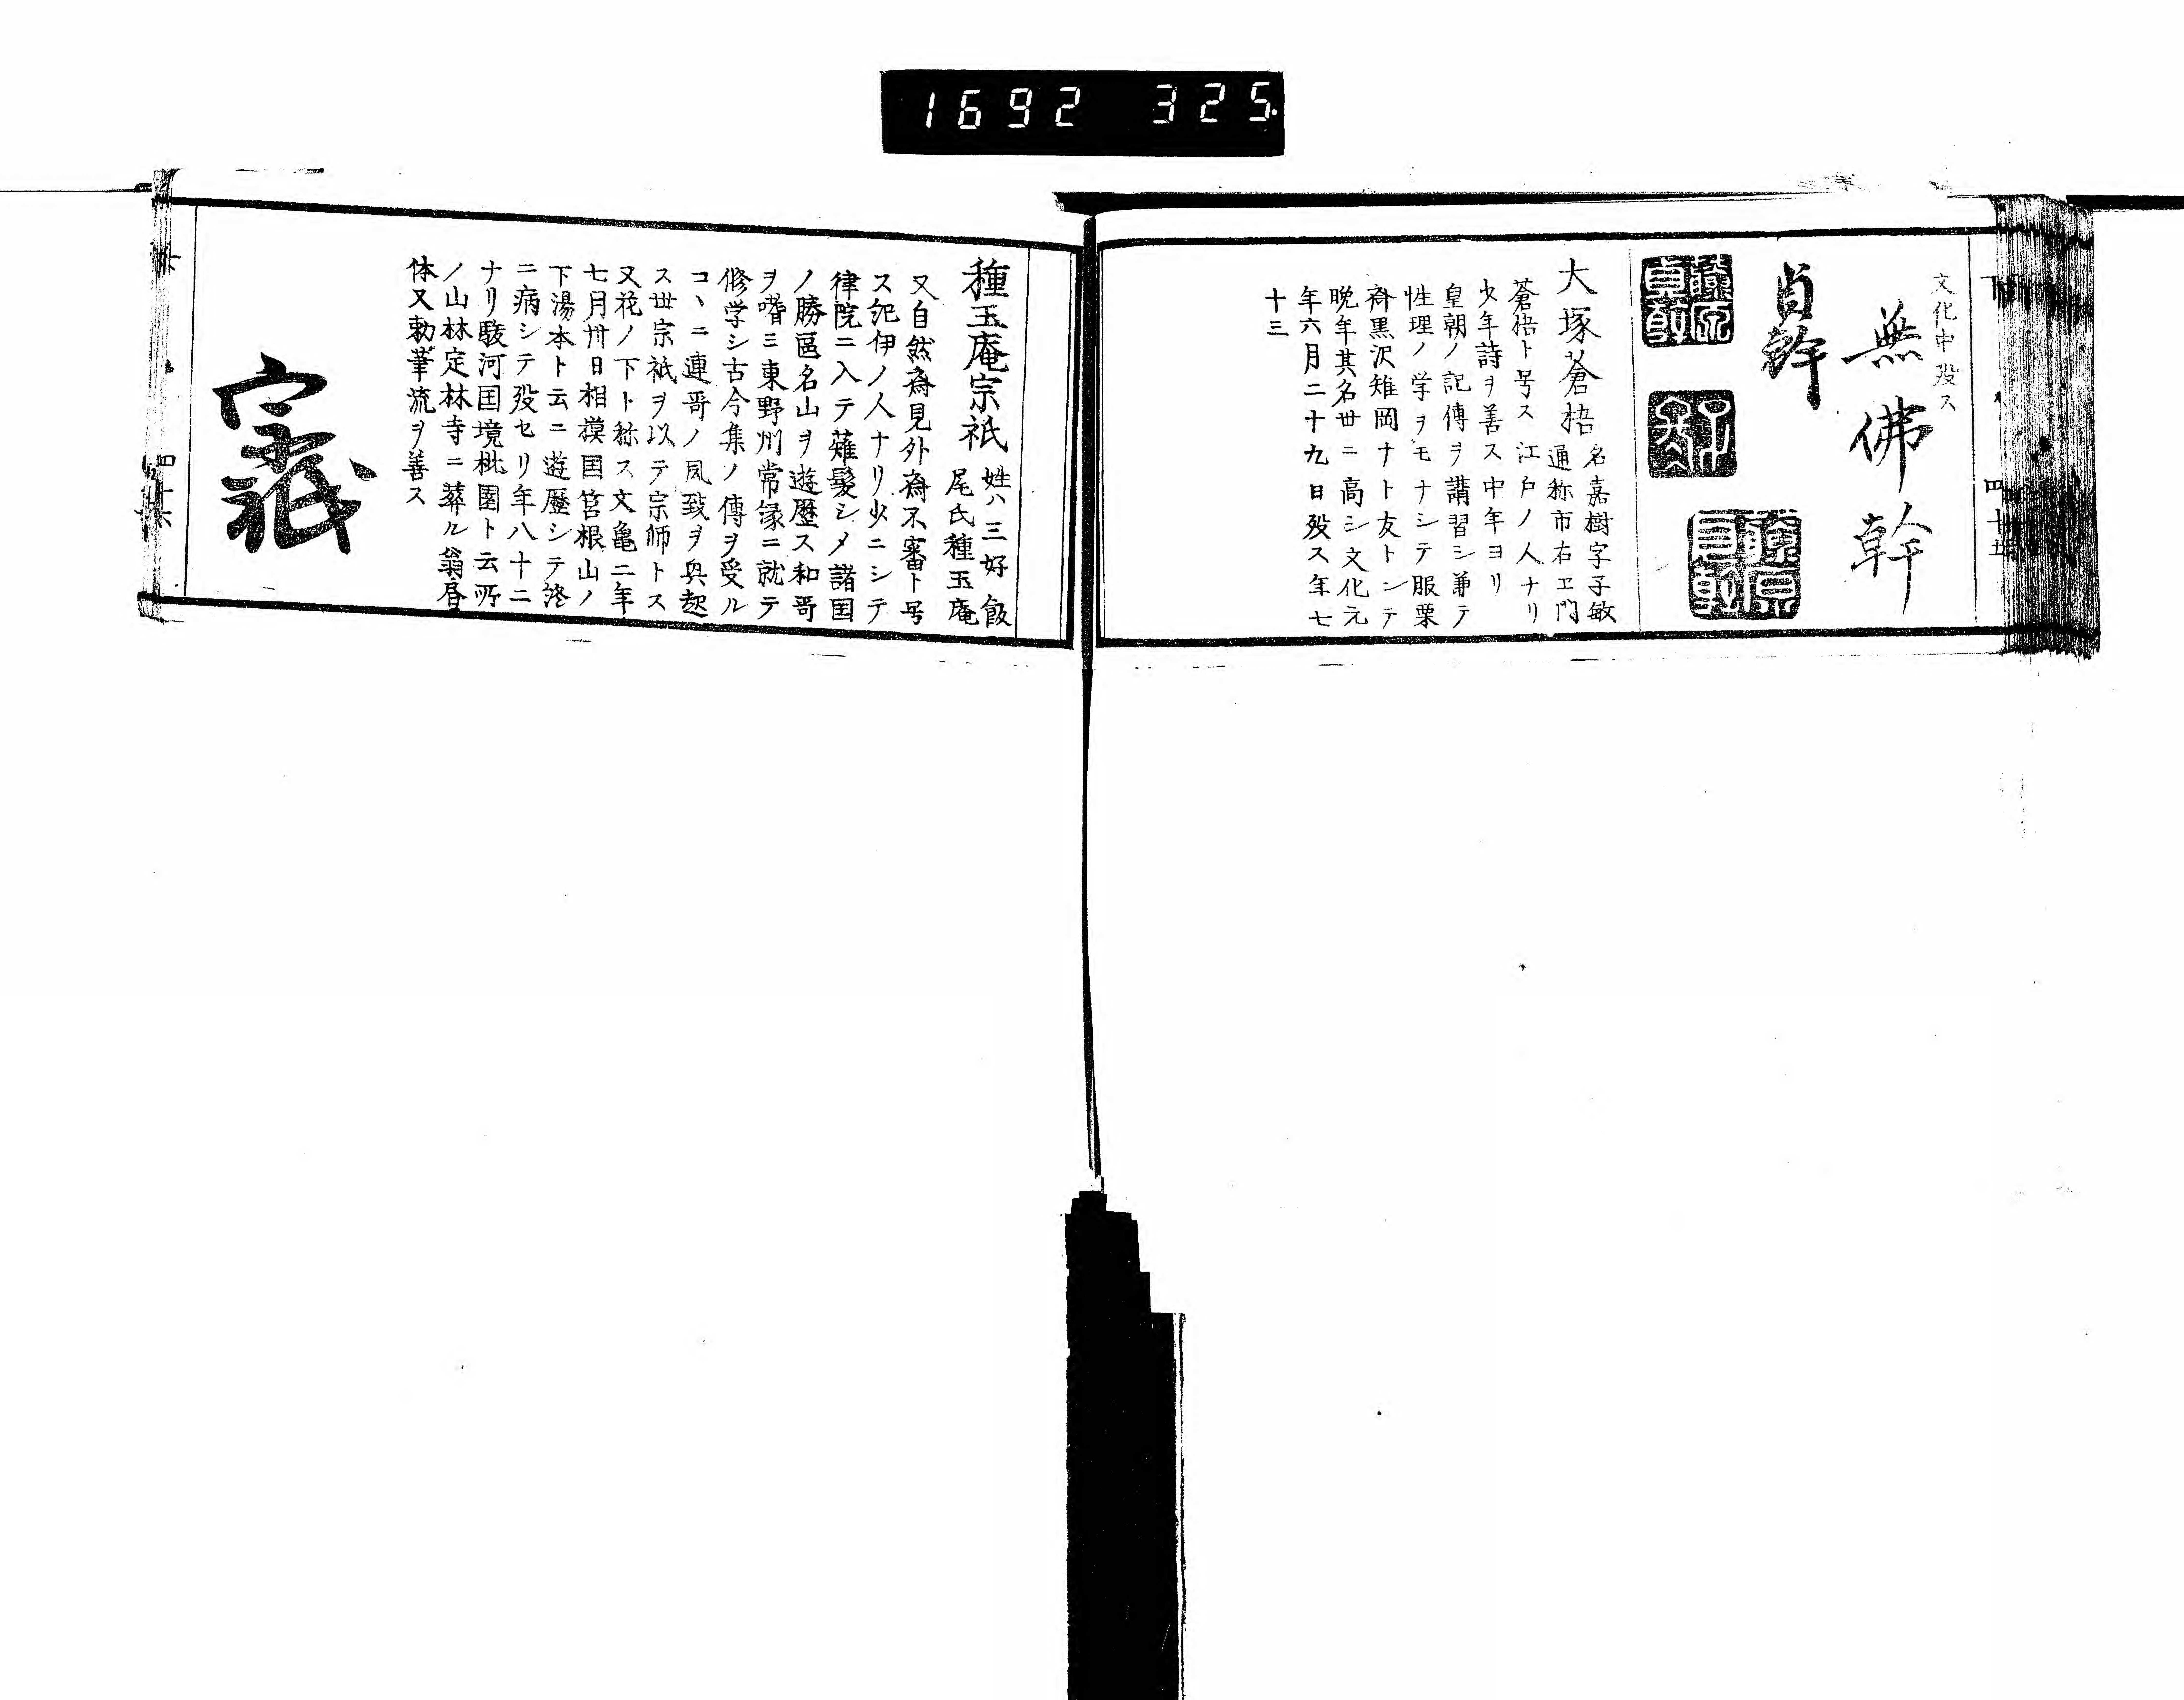 1692 325
文化中歿ス
無佛幹
貞幹
大塚蒼梧
名嘉樹字子敏
通称市右ヱ門
蒼梧ト号ス江戸ノ人ナリ
少年詩ヲ善ス中年ヨリ
皇朝ノ記傳ヲ講習シ兼テ
性理ノ学ヲモナシテ服栗
斎黒沢雉岡ナト友トシテ
晩年其名世ニ高シ文化元
年六月二十九日歿ス年七
十三
種玉庵宗祇
姓ハ三好飯
尾氏種玉庵
又自然斎見外斎不審ト号
ス紀伊ノ人ナリ少ニシテ
律院ニ入テ薙髪シメ諸国
ノ勝區名山ヲ遊歴ス和哥
ヲ嗜ミ東野州常縁ニ就テ
修学シ古今集ノ傳ヲ受ル
コヽニ連哥ノ風致ヲ興起
ス世宗祇ヲ以テ宗師トス
又花ノ下ト称ス文亀二年
七月卅日相模国筥根山ノ
下湯本ト云ニ遊歴シテ終
ニ病シテ歿セリ年八十二
ナリ駿河国境桃園ト云所
ノ山林定林寺ニ葬ル翁唇
体又勅筆流ヲ善ス